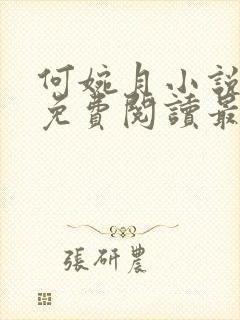 何婉月小說
免費閱讀最
張研農